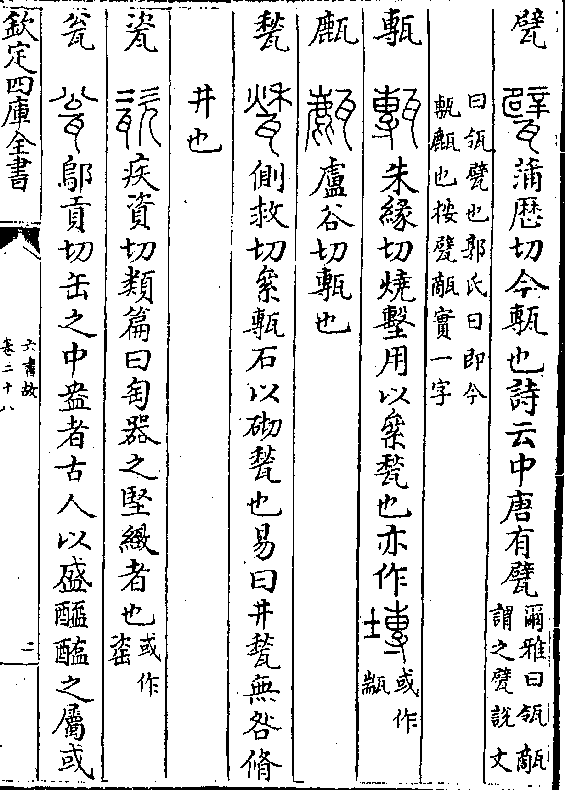 甓　甓蒲歴切今甎也詩云中唐有甓爾雅曰瓴甋謂之甓說文
曰瓴甓也郭氏曰即今甎甋也按甓甋實一字
甎　甎朱緣切燒墼用以絫甃也亦作塼或作㼷
甗　盧谷切甎也
甃　甃側救切絫甎石以砌甃也易曰井甃無咎脩
井也
瓷　瓷疾資切類篇曰匋器之堅緻者也或作𡹬
瓮　瓮鄔貢切缶之中盎者古人以盛醯醢之屬或
欽定四庫全書
六書故
卷二十八
二